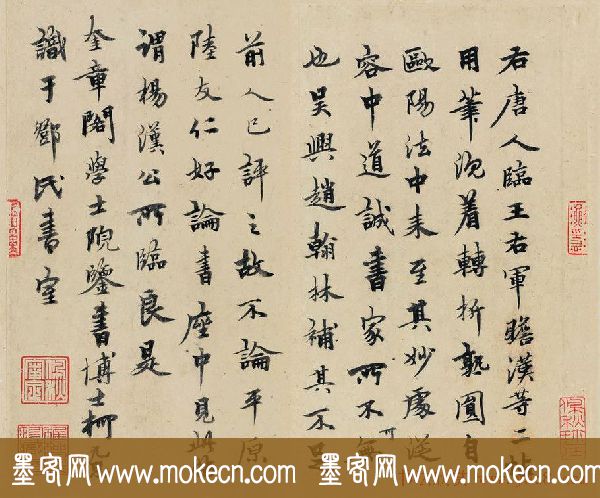 右唐人臨王右軍瞻漢等二帖
用筆沉着轉折熟圓自
歐陽法中来至其妙處從
容中道誠書家所不可無
也吳興趙翰林補其不足
前人已評之故不論平原
陸友仁好論書座中見此
謂楊漢公所臨良是
奎章閣學士院鑒書博士柯九
識于鄧氏書室
墨客网 www.mokecn.com 墨客网 www.mokecn.com